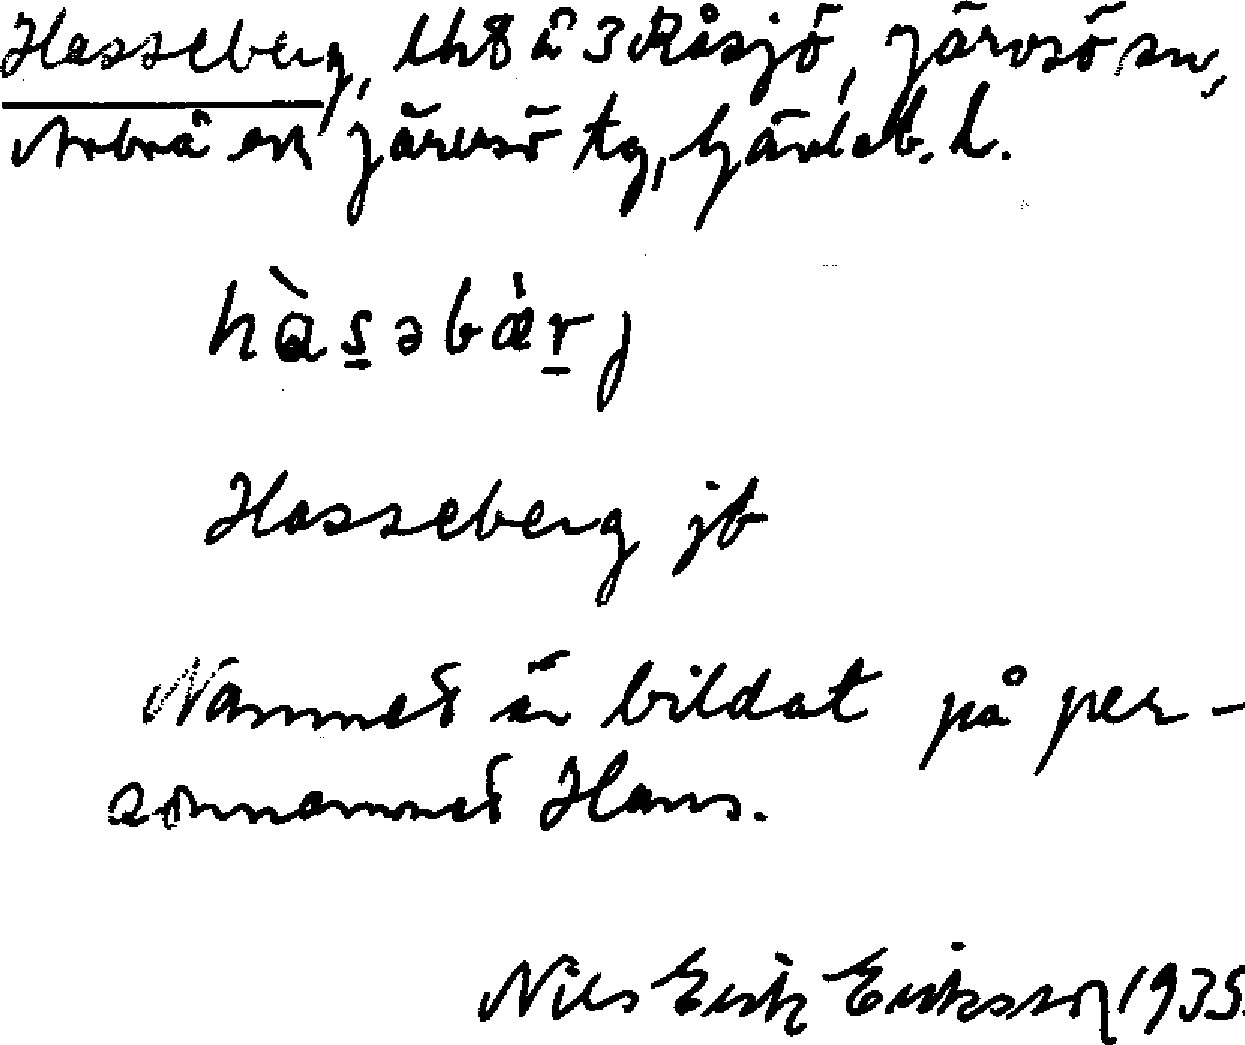 Hasseberg, lh 8 å 3 Råsjö, Järvsö sn,
Arbrå och Järvsö tg, Gävleb. l.
hàsəbàrj
Hasseberg jb
Namnet är bildat på per-
sonnamnet Hans.
Nils Erik Eriksson 1935.